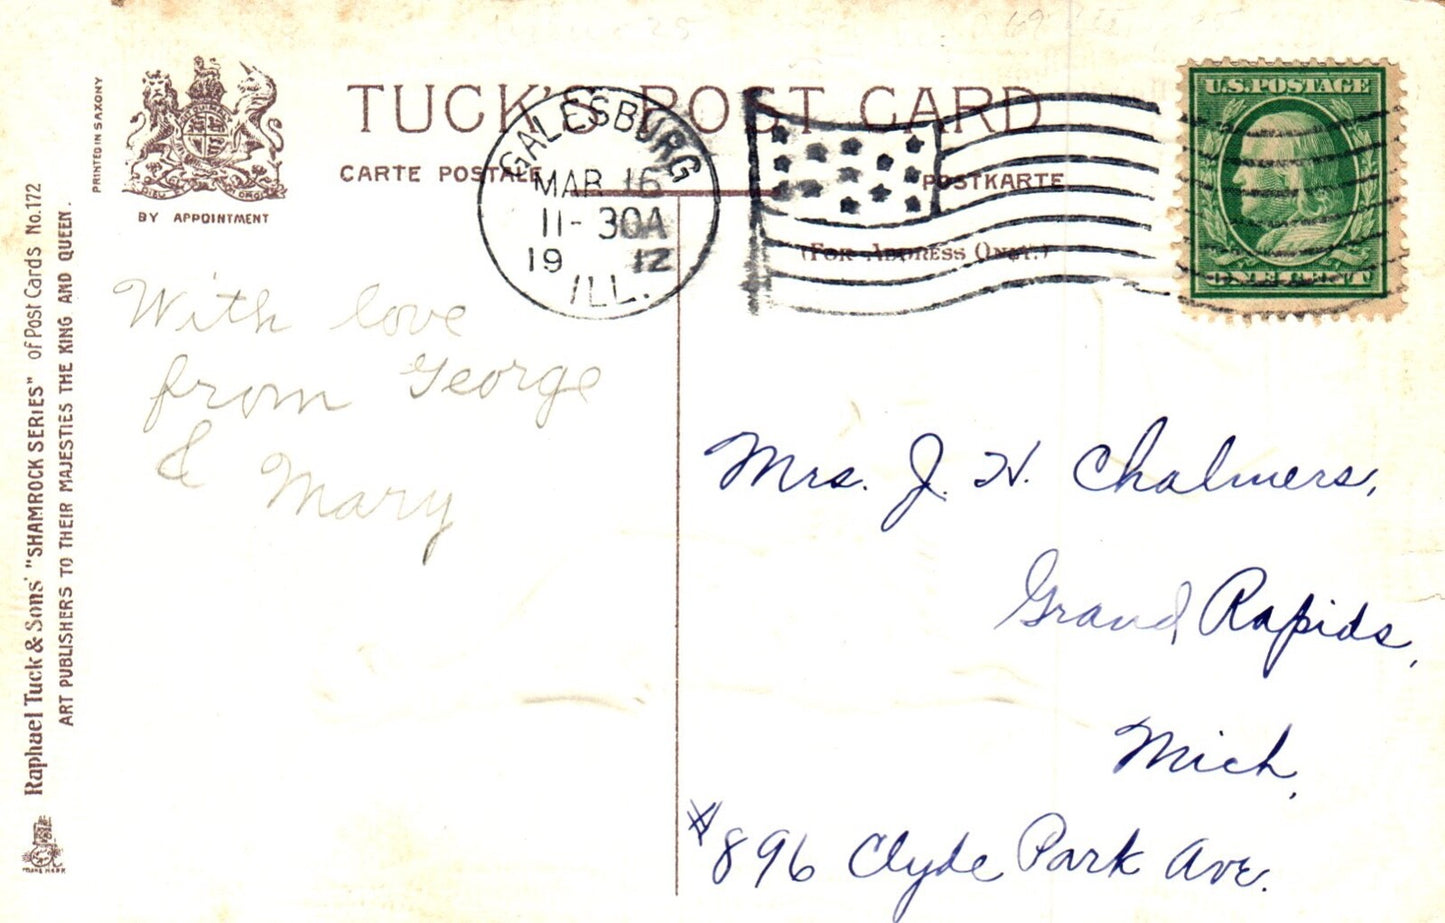 PRINTED IN SAXONY
BY APPOINTMENT
TUCK'S POST CARD
CARTE POSTALE
POSTKARTE
(FOR ADDRESS ONLY.)
GALESBURG
MAR 16
11-30A
19 12
ILL.
U.S. POSTAGE
ONE CENT
Raphael Tuck & Sons' "SHAMROCK SERIES" of Post Cards No. 172
ART PUBLISHERS TO THEIR MAJESTIES THE KING AND QUEEN.
With love
from George
& Mary
Mrs. J. H. Chalmers,
Grand Rapids,
Mich,
#896 Clyde Park Ave.